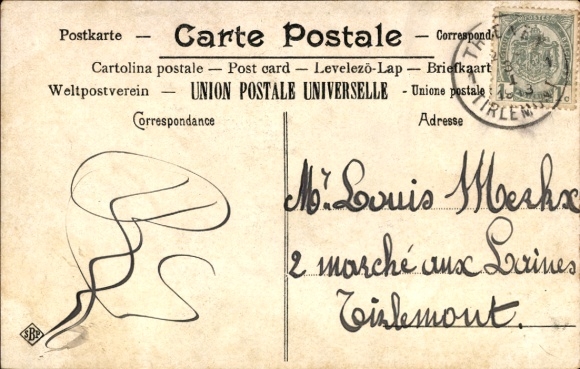 Postkarte — Carte Postale — Correspond
Cartolina postale — Post card — Levelezö-Lap — Briefkaart
Weltpostverein — UNION POSTALE UNIVERSELLE - Unione postale
Correspondance
Adresse
TIRLEMONT
Mr. Louis Merkx
2 marché aux Laines
Tirlemont.
SBP